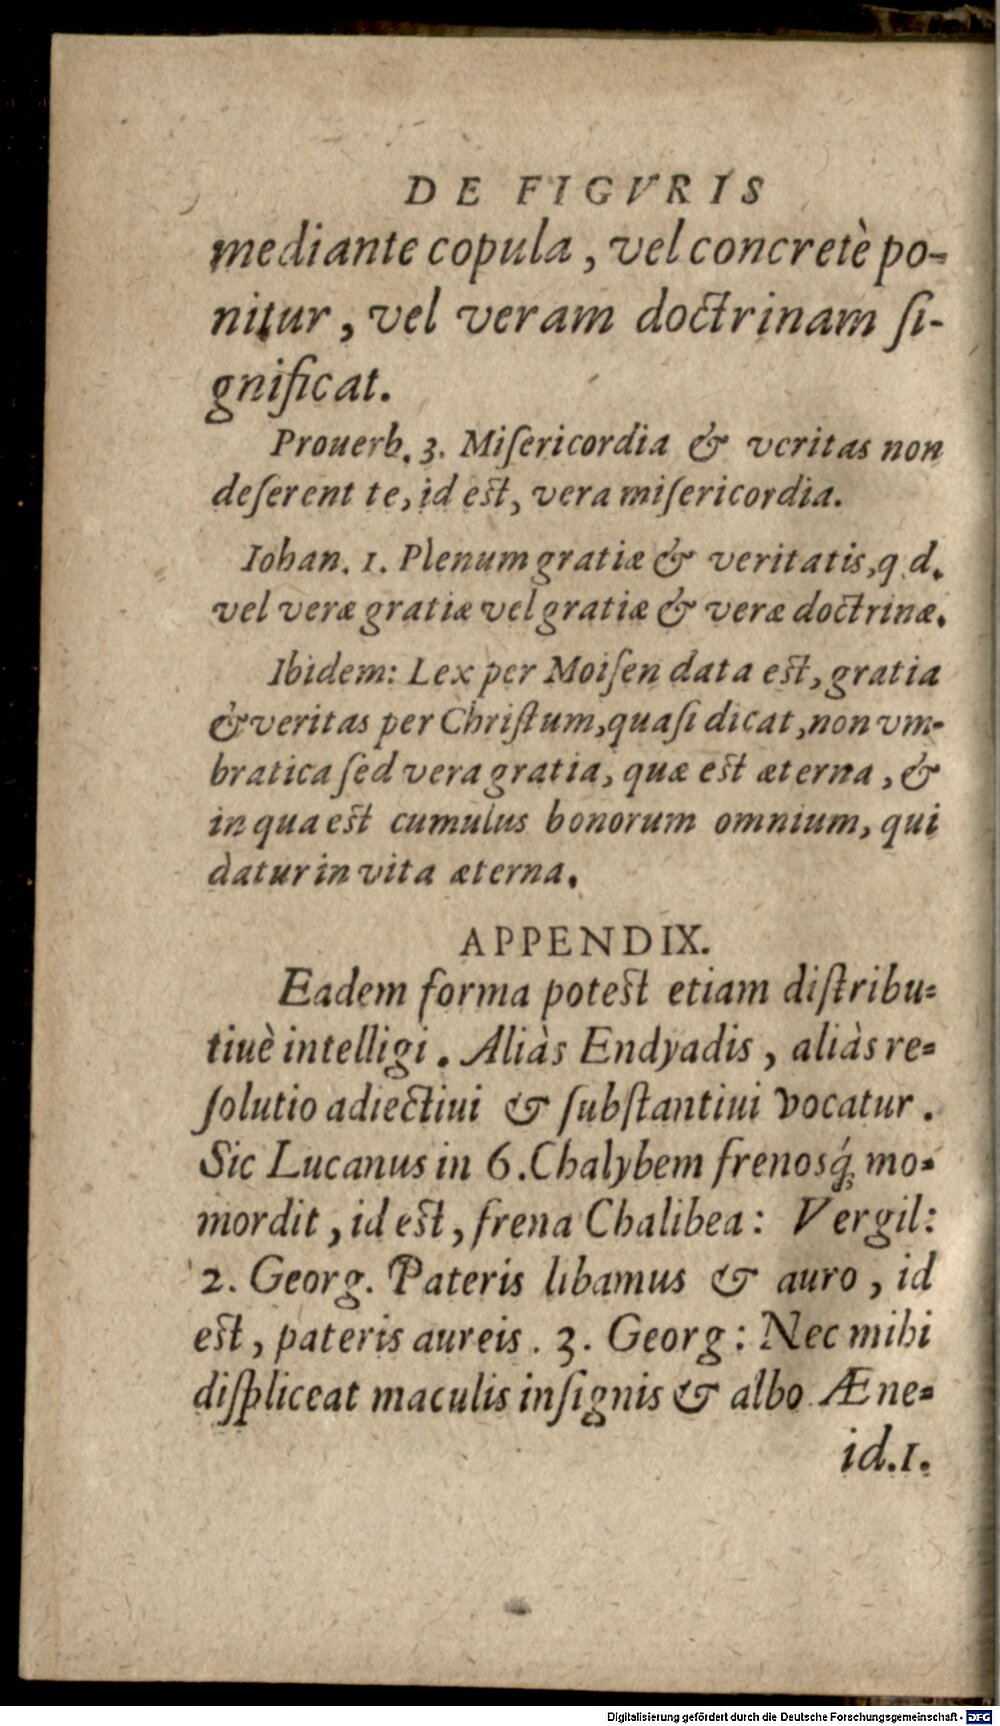 DE FIGVRIS
mediante copula, vel concretè po-
nitur, vel veram doctrinam ſi-
gnificat.
Prouerb. 3. Miſericordia & veritas non
deſerent te, id est, vera miſericordia.
Iohan. 1. Plenum gratiæ & veritatis, q d.
vel veræ gratiæ vel gratiæ & veræ doctrinæ.
Ibidem: Lex per Moiſen data est, gratia
& veritas per Chriſtum, quaſi dicat, non vm-
bratica ſed vera gratia, quæ est æterna, &
in qua est cumulus bonorum omnium, qui
datur in vita æterna.
APPENDIX.
Eadem forma potest etiam diſtribu-
tiuè intelligi. Aliàs Endyadis, aliàs re-
ſolutio adiectiui & ſubſtantiui vocatur.
Sic Lucanus in 6. Chalybem frenosq́; mo-
mordit, id est, frena Chalibea: Vergil:
2. Georg. Pateris libamus & auro, id
est, pateris aureis. 3. Georg: Nec mihi
diſpliceat maculis inſignis & albo Æne-
id.1.
Digitalisierung gefördert durch die Deutsche Forschungsgemeinschaft - DFG